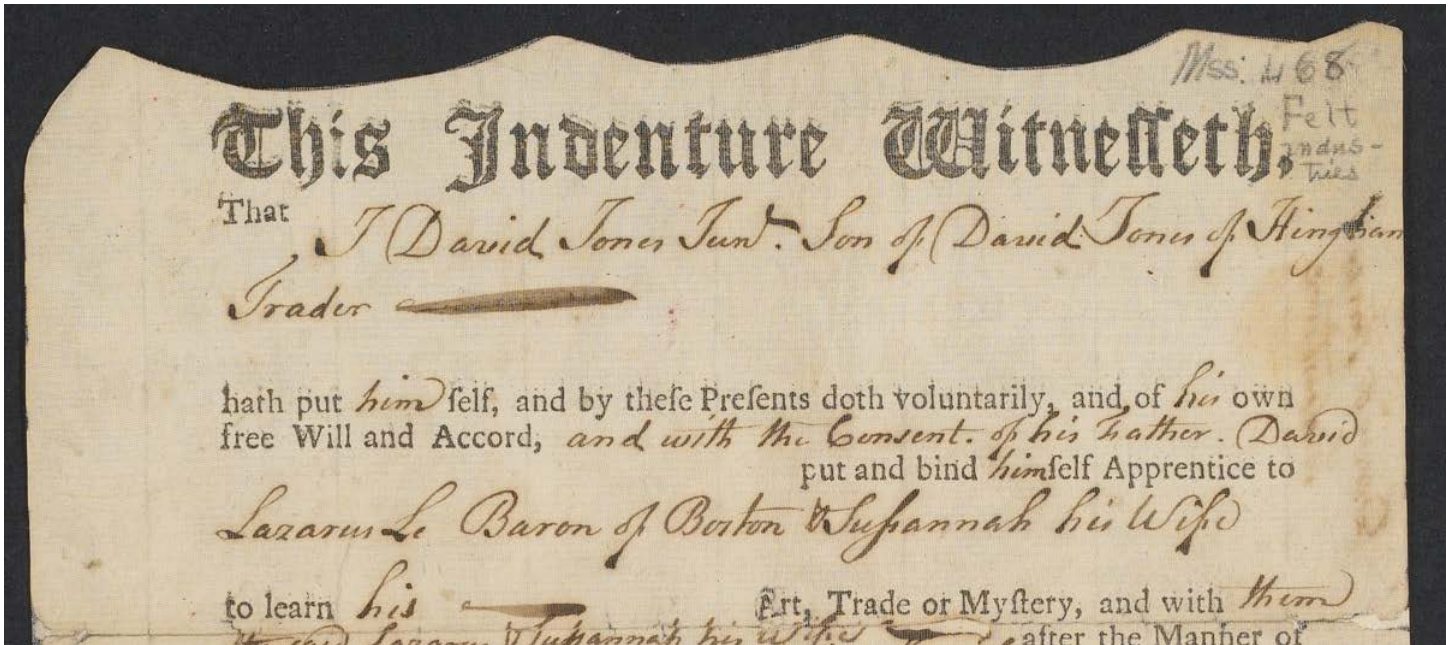 Mss. 468
Felt
indus-
tries
This Indenture Witneſſeth,
That
I David Jones Junr. Son of David Jones of Hingham
Trader
hath put him ſelf, and by theſe Preſents doth voluntarily, and of his own
free Will and Accord, and with the Consent. of his Father. David
put and bind himſelf Apprentice to
Lazarus Le Baron of Boston & Suſsannah his Wife
to learn his Art, Trade or Myſtery, and with them
said Lazarus & Suſsannah his Wife after the Manner of